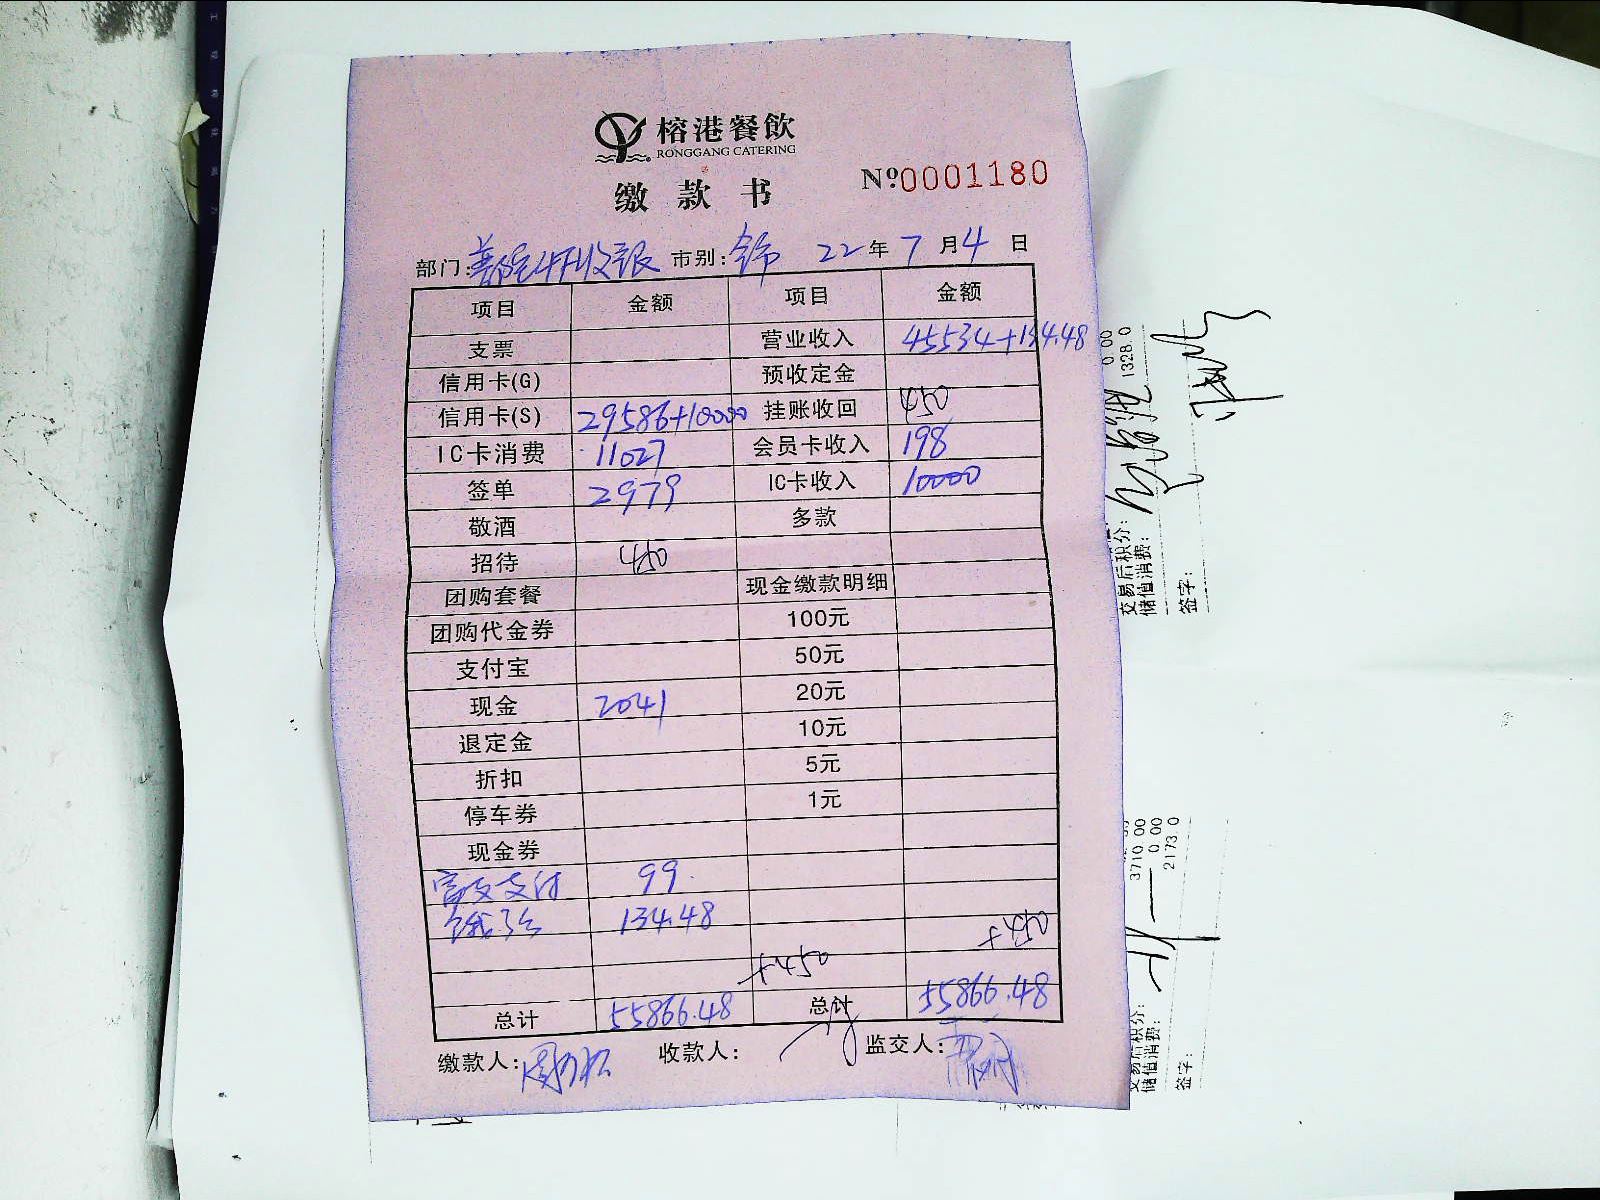 榕港餐飲
RONGGANG CATERING
缴款书
Nº0001180
部门: 收银 市别: 全市 22年 7月4日
项目 金额 项目 金额
支票 营业收入 45534+134.48
信用卡(G) 预收定金
信用卡(S) 29586+10000 挂账收回 450
IC卡消费 11027 会员卡收入 198
签单 2979 IC卡收入 10000
敬酒 多款
招待 450
团购套餐 现金缴款明细
团购代金券 100元
支付宝 50元
现金 2041 20元
退定金 10元
折扣 5元
停车券 1元
现金券
支付 99
134.48
+450
+450
总计 55866.48 总计 55866.48
缴款人: 收款人: 监交人:
0.00
1328.0
交易后积分:
储值消费:
签字:
3710 00
0.00
2173.0
交易后积分:
储值消费:
签字: